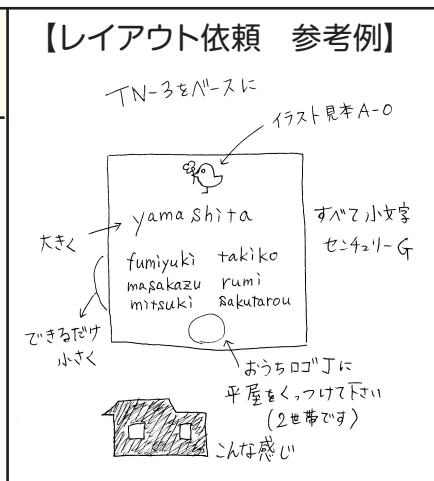 【レイアウト依頼 参考例】
TN-3をベースに
イラスト見本A-0
yamashita
すべて小文字
センチュリーG
大きく
fumiyuki takiko
masakazu rumi
mitsuki sakutarou
できるだけ
小さく
おうちロゴJに
平屋をくっつけて下さい
(2世帯です)
こんな感じ